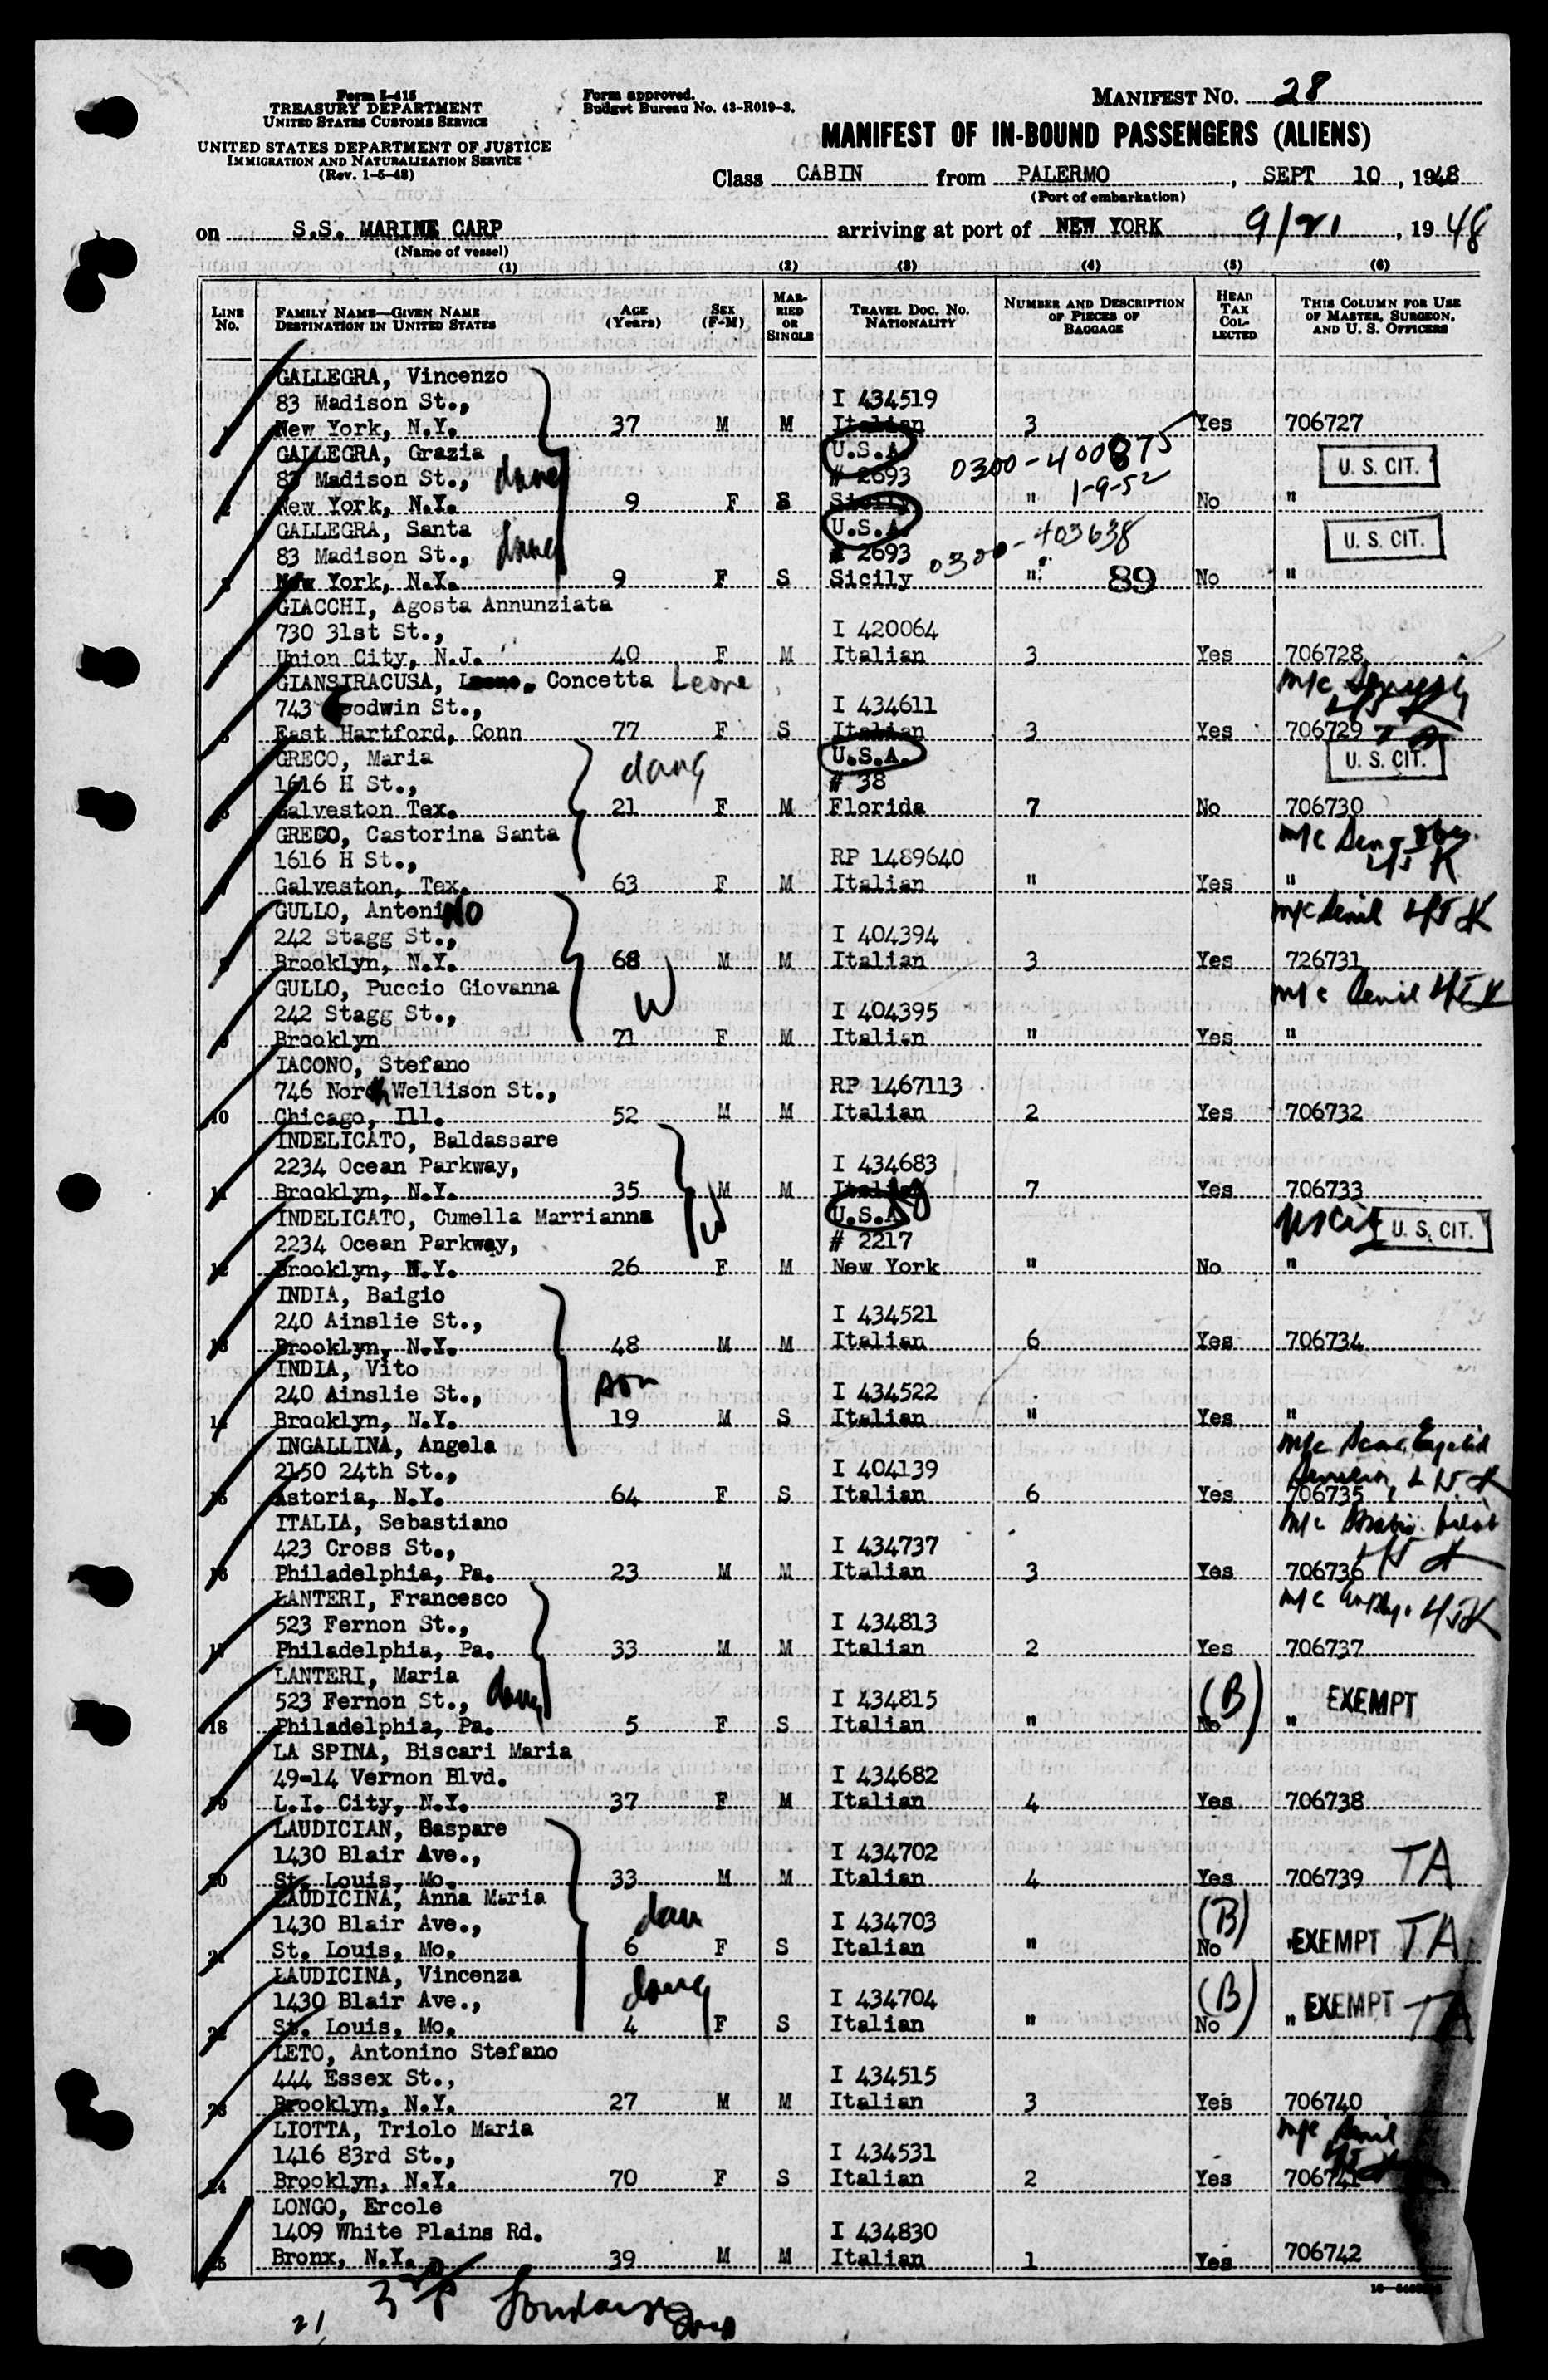 Form I-415
TREASURY DEPARTMENT
UNITED STATES CUSTOMS SERVICE
UNITED STATES DEPARTMENT OF JUSTICE
IMMIGRATION AND NATURALIZATION SERVICE
(Rev. 1-5-48)
Form approved.
Budget Bureau No. 43-R019-3.
MANIFEST NO. 28
MANIFEST OF IN-BOUND PASSENGERS (ALIENS)
Class CABIN from PALERMO, SEPT 10, 1948
(Port of embarkation)
on S.S. MARINE CARP arriving at port of NEW YORK 9/21, 1948
(Name of vessel)
(1) (2) (3) (4) (5) (6)
LINE No. FAMILY NAME—GIVEN NAME DESTINATION IN UNITED STATES AGE (Years) SEX (F-M) MARRIED OR SINGLE TRAVEL DOC. NO. NATIONALITY NUMBER AND DESCRIPTION OF PIECES OF BAGGAGE HEAD TAX COLLECTED THIS COLUMN FOR USE OF MASTER, SURGEON, AND U. S. OFFICERS
GALLEGRA, Vincenzo
83 Madison St., I 434519
New York, N.Y. 37 M M Italian 3 Yes 706727
GALLEGRA, Grazia U.S.A. 0300-400875 U. S. CIT.
83 Madison St., # 2693 1-9-52
New York, N.Y. 9 F S Sicily " No "
GALLEGRA, Santa U.S.A. 0300-403638 U. S. CIT.
83 Madison St., # 2693
New York, N.Y. 9 F S Sicily " 89 No "
GIACCHI, Agosta Annunziata
730 31st St., I 420064
Union City, N.J. 40 F M Italian 3 Yes 706728
GIANSIRACUSA, Concetta Leone
743 Goodwin St., I 434611
East Hartford, Conn 77 F S Italian 3 Yes 706729
GRECO, Maria daug U.S.A. U. S. CIT.
1616 H St., # 38
Galveston Tex. 21 F M Florida 7 No 706730
GRECO, Castorina Santa
1616 H St., RP 1489640
Galveston, Tex. 63 F M Italian " Yes "
GULLO, Antonino
242 Stagg St., I 404394
Brooklyn, N.Y. 68 M M Italian 3 Yes 726731
GULLO, Puccio Giovanna W
242 Stagg St., I 404395
Brooklyn 71 F M Italian " Yes "
IACONO, Stefano
746 North Wellison St., RP 1467113
10 Chicago, Ill. 52 M M Italian 2 Yes 706732
INDELICATO, Baldassare
2234 Ocean Parkway, I 434683
11 Brooklyn, N.Y. 35 M M Italian 7 Yes 706733
INDELICATO, Cumella Marrianna W U.S.A. US Cit U. S. CIT.
2234 Ocean Parkway, # 2217
12 Brooklyn, N.Y. 26 F M New York " No "
INDIA, Baigio
240 Ainslie St., I 434521
13 Brooklyn, N.Y. 48 M M Italian 6 Yes 706734
INDIA, Vito son
240 Ainslie St., I 434522
14 Brooklyn, N.Y. 19 M S Italian " Yes "
INGALLINA, Angela
2150 24th St., I 404139
15 Astoria, N.Y. 64 F S Italian 6 Yes 706735
ITALIA, Sebastiano
423 Cross St., I 434737
16 Philadelphia, Pa. 23 M M Italian 3 Yes 706736
LANTERI, Francesco
523 Fernon St., I 434813
17 Philadelphia, Pa. 33 M M Italian 2 Yes 706737
LANTERI, Maria
523 Fernon St., daug I 434815 (B) EXEMPT
18 Philadelphia, Pa. 5 F S Italian " No "
LA SPINA, Biscari Maria
49-14 Vernon Blvd. I 434682
19 L.I. City, N.Y. 37 F M Italian 4 Yes 706738
LAUDICIAN, Gaspare
1430 Blair Ave., I 434702
20 St. Louis, Mo. 33 M M Italian 4 Yes 706739 TA
LAUDICINA, Anna Maria
1430 Blair Ave., dau I 434703 (B)
21 St. Louis, Mo. 6 F S Italian " No " EXEMPT TA
LAUDICINA, Vincenza
1430 Blair Ave., daug I 434704 (B) EXEMPT TA
22 St. Louis, Mo. 4 F S Italian " No "
LETO, Antonino Stefano
444 Essex St., I 434515
23 Brooklyn, N.Y. 27 M M Italian 3 Yes 706740
LIOTTA, Triolo Maria
1416 83rd St., I 434531
24 Brooklyn, N.Y. 70 F S Italian 2 Yes 706741
LONGO, Ercole
1409 White Plains Rd. I 434830
25 Bronx, N.Y. 39 M M Italian 1 Yes 706742
21